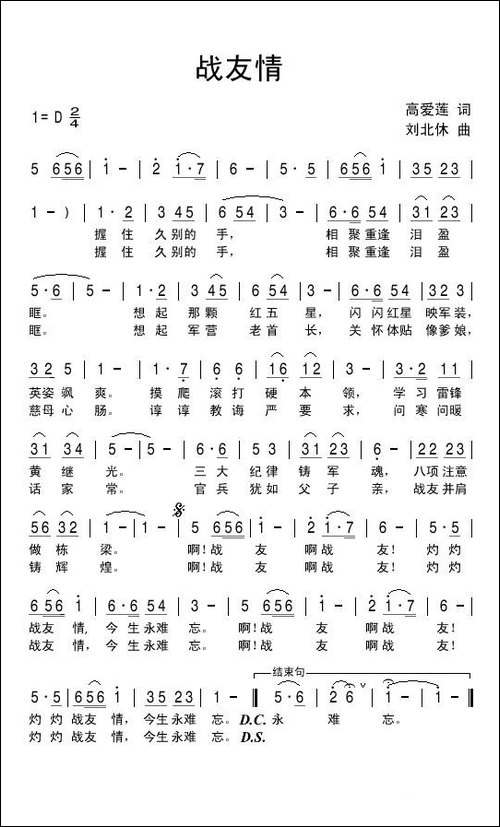 战友情
1=D 2/4
高爱莲 词
刘北休 曲
5 656 | 1 - | 2 1·7 | 6 - | 5·5 | 656 1 | 35 23 |
1 - ) | 1·2 | 3 45 | 6 54 | 3 - | 6·6 54 | 31 23 |
握 住 久 别的 手, 相 聚 重逢 泪 盈
握 住 久 别的 手, 相 聚 重逢 泪 盈
5·6 | 5 - | 1·2 | 3 45 | 6 54 | 3 - | 6·6 54 | 35 12 |
眶。 想 起 那 颗 红 五 星, 闪 闪 红星 映军 装,
眶。 想 起 军 营 老 首 长, 关 怀 体贴 像爹 娘,
33 2 5 | 1 - | 1·7 | 6·6 | 12 16 | 3 - | 3·2 11 |
英姿 飒 爽。 摸 爬 滚 打 硬 本 领, 学 习 雷锋
慈母 心 肠。 谆 谆 教 诲 严 要 求, 问 寒 问暖
31 34 | 5 - | 5 - | 6·6 | 53 | 31 23 | 5 - | 22 23 |
黄 继 光。 三 大 纪 律 铸 军 魂, 八项 注意
话 家 常。 官 兵 犹 如 父 子 亲, 战友 并肩
56 32 | 1 - | 1 - | 5 656 | 1 - | 2 1·7 | 6 - | 5·5 |
做 栋 梁。 啊! 战 友 啊 战 友! 灼 灼
铸 辉 煌。 啊! 战 友 啊 战 友! 灼 灼
6 56 5 | 6·6 54 | 3 - | 5 656 | 1 - | 2 1·7 | 6 - |
战友 情, 今 生 永难 忘。 啊! 战 友 啊 战 友!
战友 情, 今 生 永难 忘。 啊! 战 友 啊 战 友!
结束句
5·5 | 656 1 | 35 23 | 1 - | 5·6 | 2 6 | 1 - | 1 - | 1 0 |
灼 灼 战友 情, 今生 永难 忘。 D.C. 永 难 忘。
灼 灼 战友 情, 今生 永难 忘。 D.S.